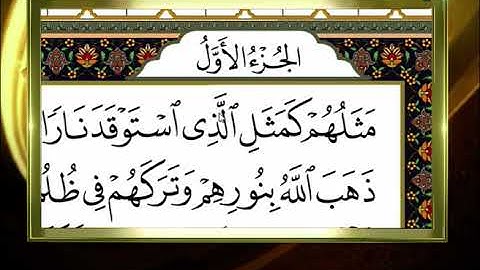 الجُزْءُ الأَوَّلُ
مَثَلُهُمْ كَمَثَلِ ٱلَّذِى ٱسْتَوْقَدَ نَارًا
ذَهَبَ ٱللَّهُ بِنُورِهِمْ وَتَرَكَهُمْ فِى